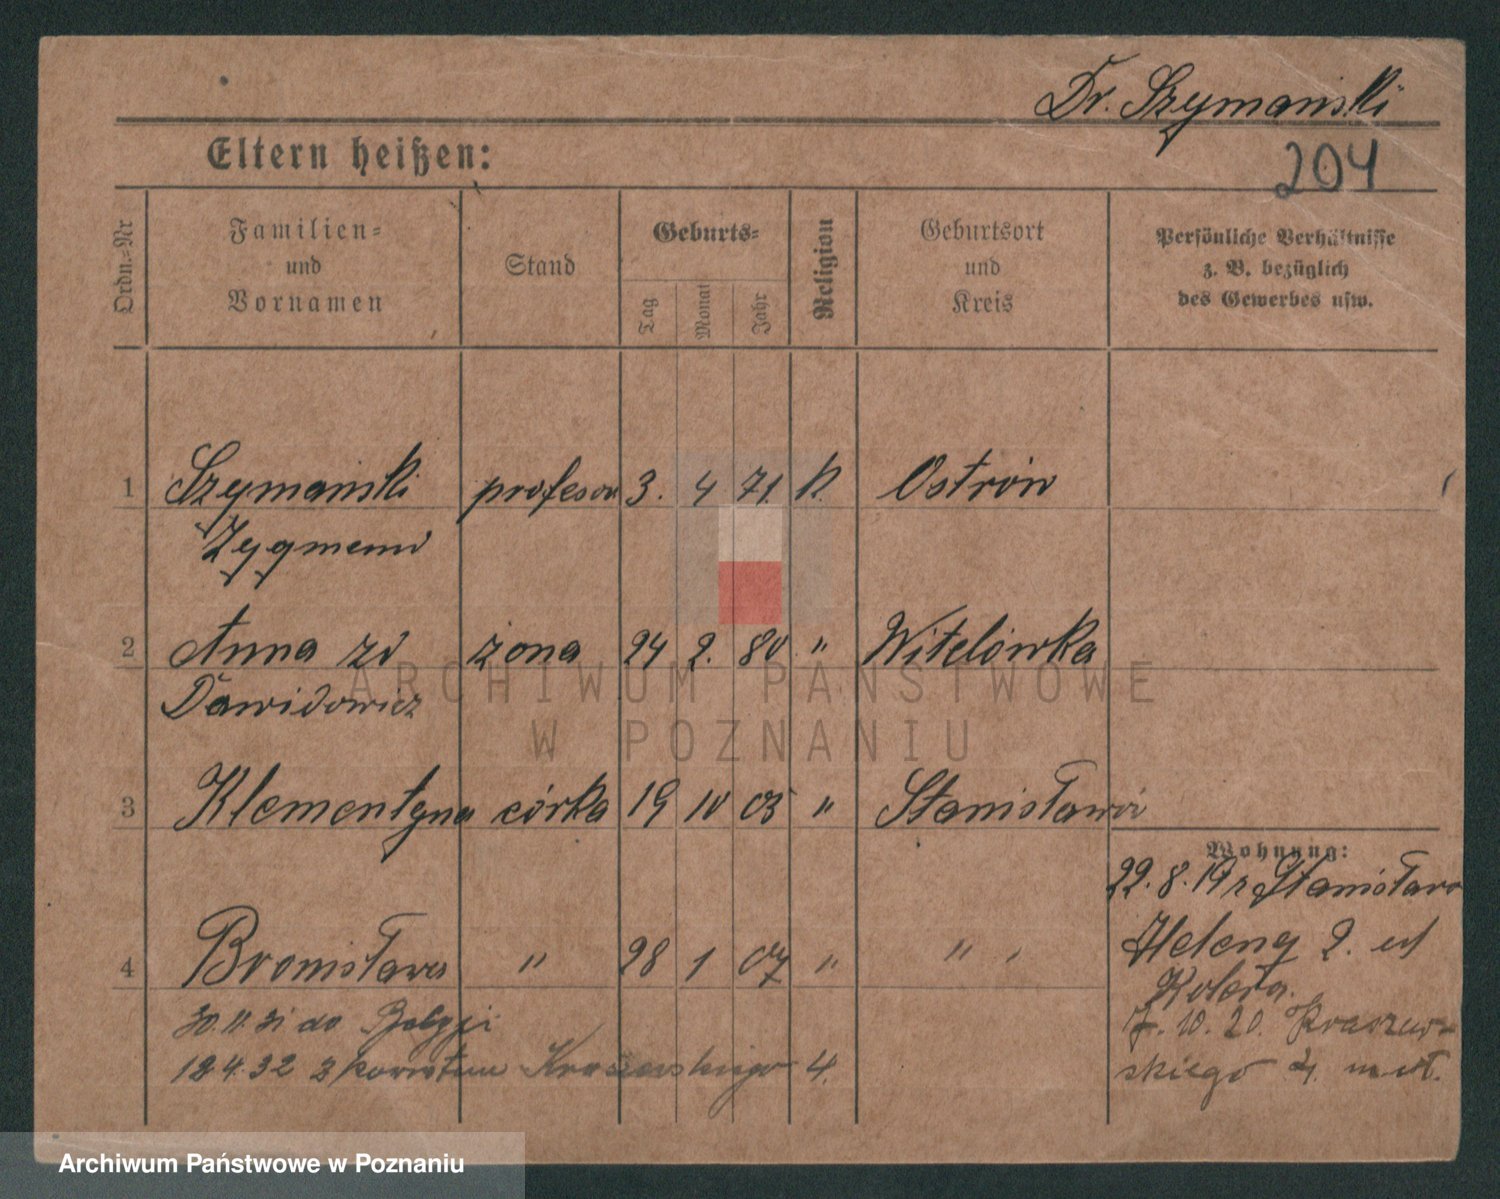 Dr. Szymański
204
Eltern heißen:
Ordn.-Nr
Familien-
und
Vornamen
Stand
Geburts-
Tag
Monat
Jahr
Religion
Geburtsort
und
Kreis
Persönliche Verhältnisse
z. B. bezüglich
des Gewerbes usw.
1 Szymański profesor 3. 4 71. k. Ostrów
Zygmunt
2 Anna zd żona 24 2. 80 " Witelówka
Dawidowicz
3 Klementyna córka 19 10 05 " Stanisławów
Wohnung:
22.8.19 z Stanisławo
4 Bronisława " 28 1 07 " " "
Helena 2. u
30.11.31 do Belgji
7. 10. 20. Kraszew-
12.4.32 z powrotem Kraszewskiego 4.
skiego 4. m wł.
ARCHIWUM PAŃSTWOWE
W POZNANIU
Archiwum Państwowe w Poznaniu